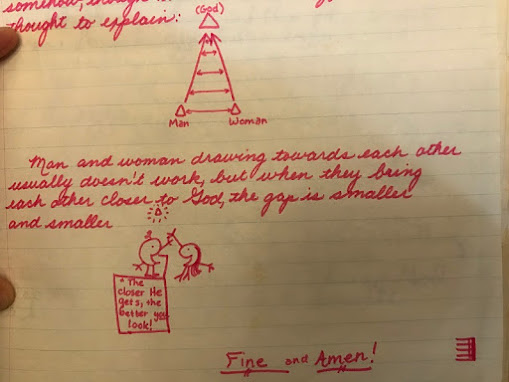 somehow, though
thought to explain:
(God)
Man Woman
Man and woman drawing towards each other
usually doesn't work, but when they bring
each other closer to God, the gap is smaller
and smaller
"The
closer He
gets, the
better you
look!
Fine and Amen!